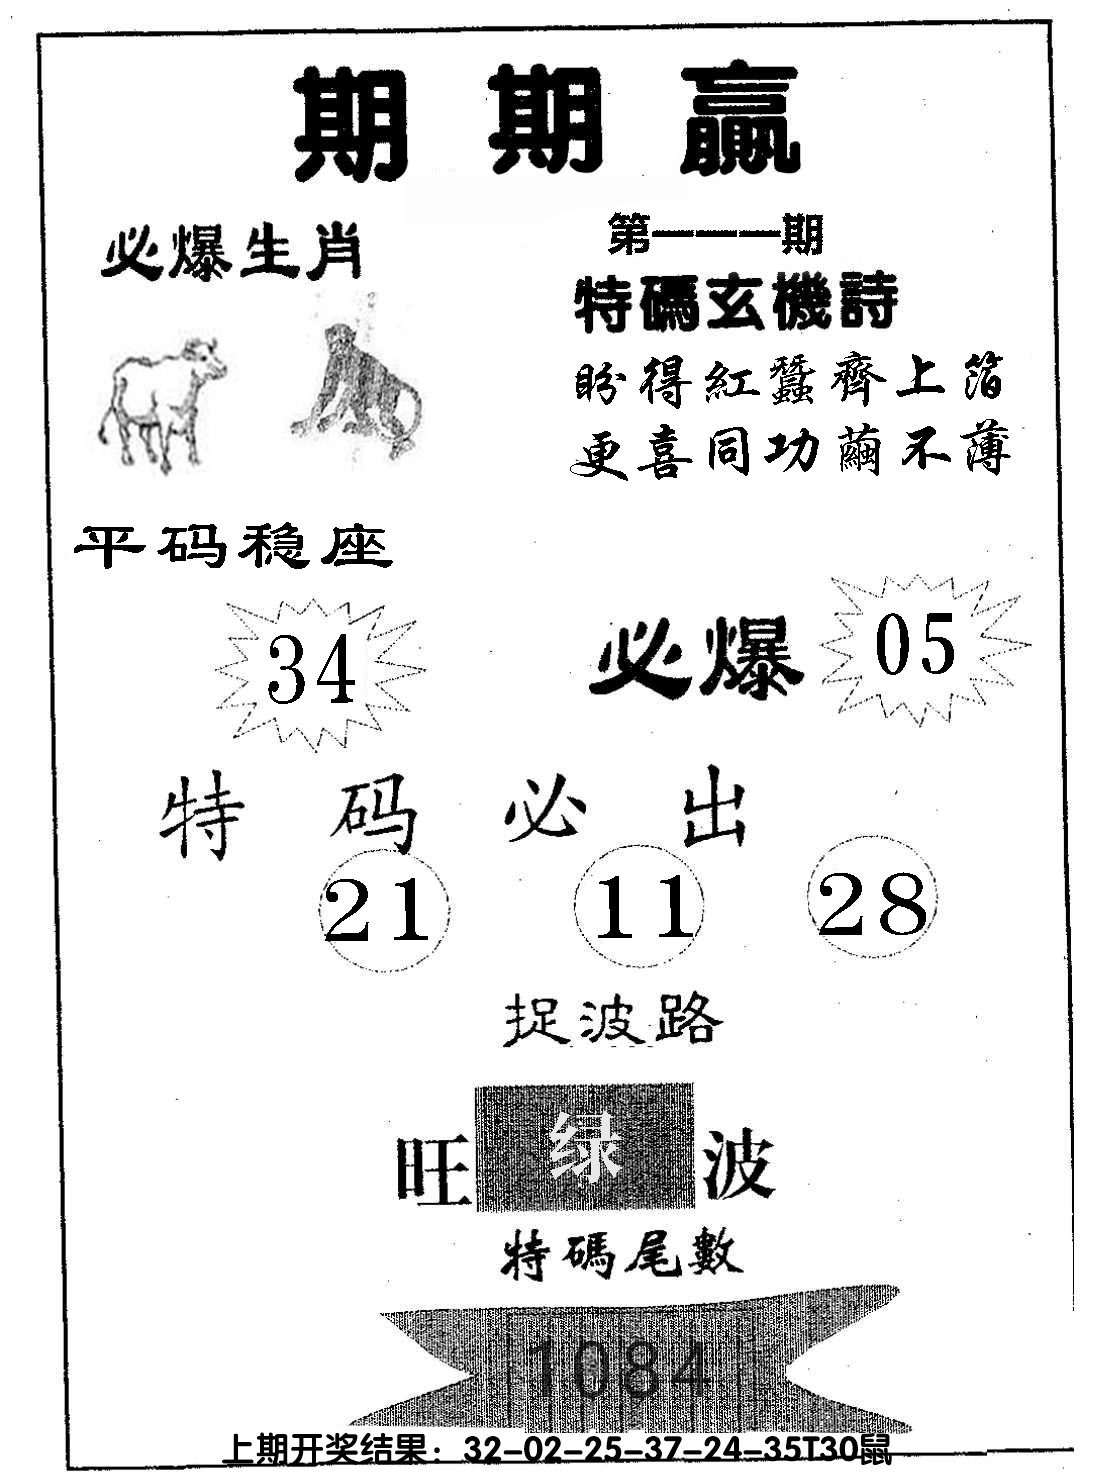 期期贏
必爆生肖
第一一一期
特碼玄機詩
盼得紅蠶齊上箔
更喜同功繭不薄
平码稳座
34
必爆
05
特码必出
21 11 28
捉波路
旺绿波
特碼尾數
1084
上期开奖结果：32-02-25-37-24-35T30鼠